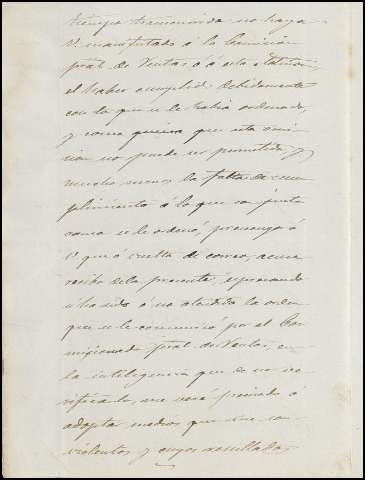 tiempo transcurrido no haya
V. manifestado á la Comision
pral de Ventas ó á esta
el haber cumplido debidamente
con lo que se le habia ordenado,
y como quiera que esta omi-
sion no puede ser permitida y
mucho menos la falta de cum-
plimiento á lo que con justa
causa se le ordenó, prevengo á
V. que á vuelta de correo, acuse
recibo de la presente, expresando
si ha sido ó no atendida la orden
que se le comunicó por el Co-
misionado pral de Ventas, en
la inteligencia que de no ve-
rificarlo, me veré precisado á
adoptar medios que son
violentos y cuyos resultados